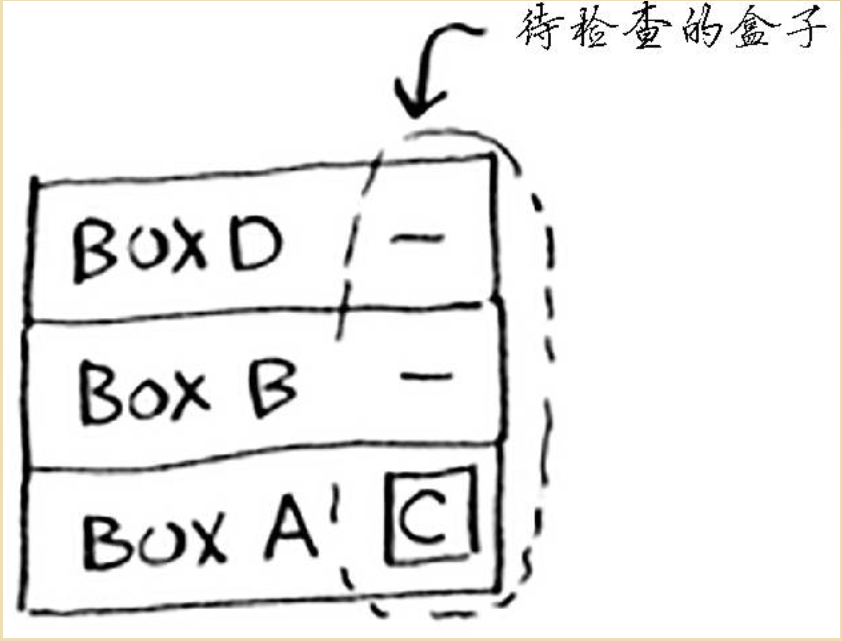 待检查的盒子
BOX D —
BOX B —
BOX A C